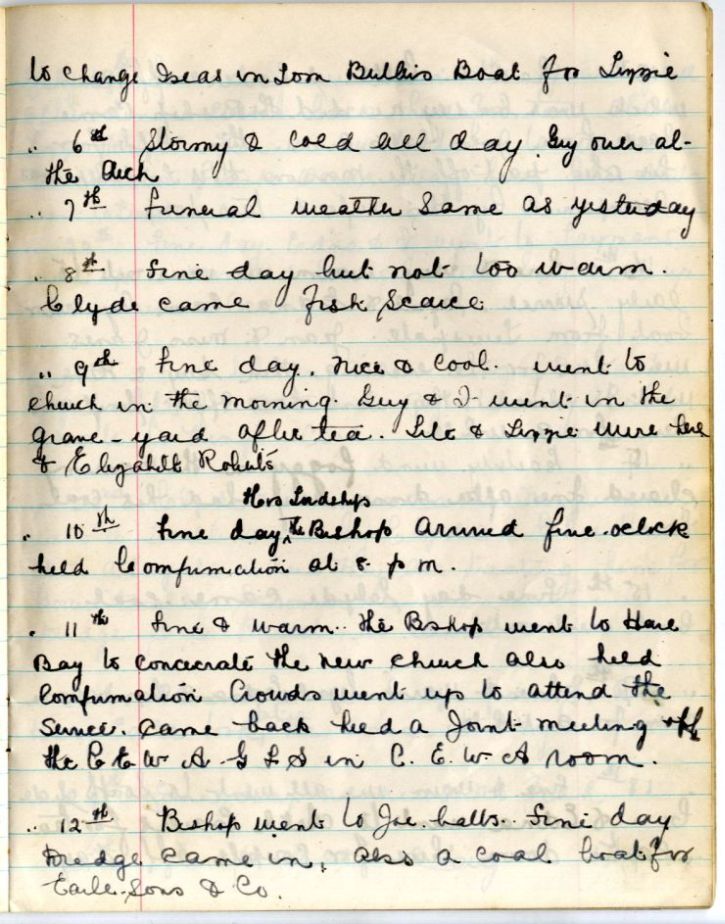 to change Ideas in Tom Bulkis Boat for Lizzie
" 6th Stormy & Cold all day. Guy over at
the Arch
" 7th funeral weather Same as yesterday
" 8th Fine day but not too warm.
Clyde came Fish Scarce
" 9th Fine day. nice & cool. went to
church in the morning. Guy & I went in the
grave-yard after tea. Lilo & Lizzie were here
& Elizabeth Roberts
His Lordship
" 10th Fine day the Bishop arrived five oclock
held Comfirmation at 8 p m.
" 11th Fine & warm. The Bshop went to Hare
Bay to concecrate the new church also held
Comfirmation Crowds went up to attend the
Service. Came back held a Joint meeting of
the C E W A - G L A in C. E. W A room.
" 12th Bishop went to Joe batts. Fine day
Dredge came in, also a coal boat for
Earle Sons & Co.